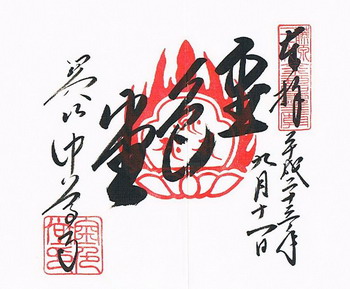 奉拝
平成二十三年
九月十一日
金色堂
中尊寺